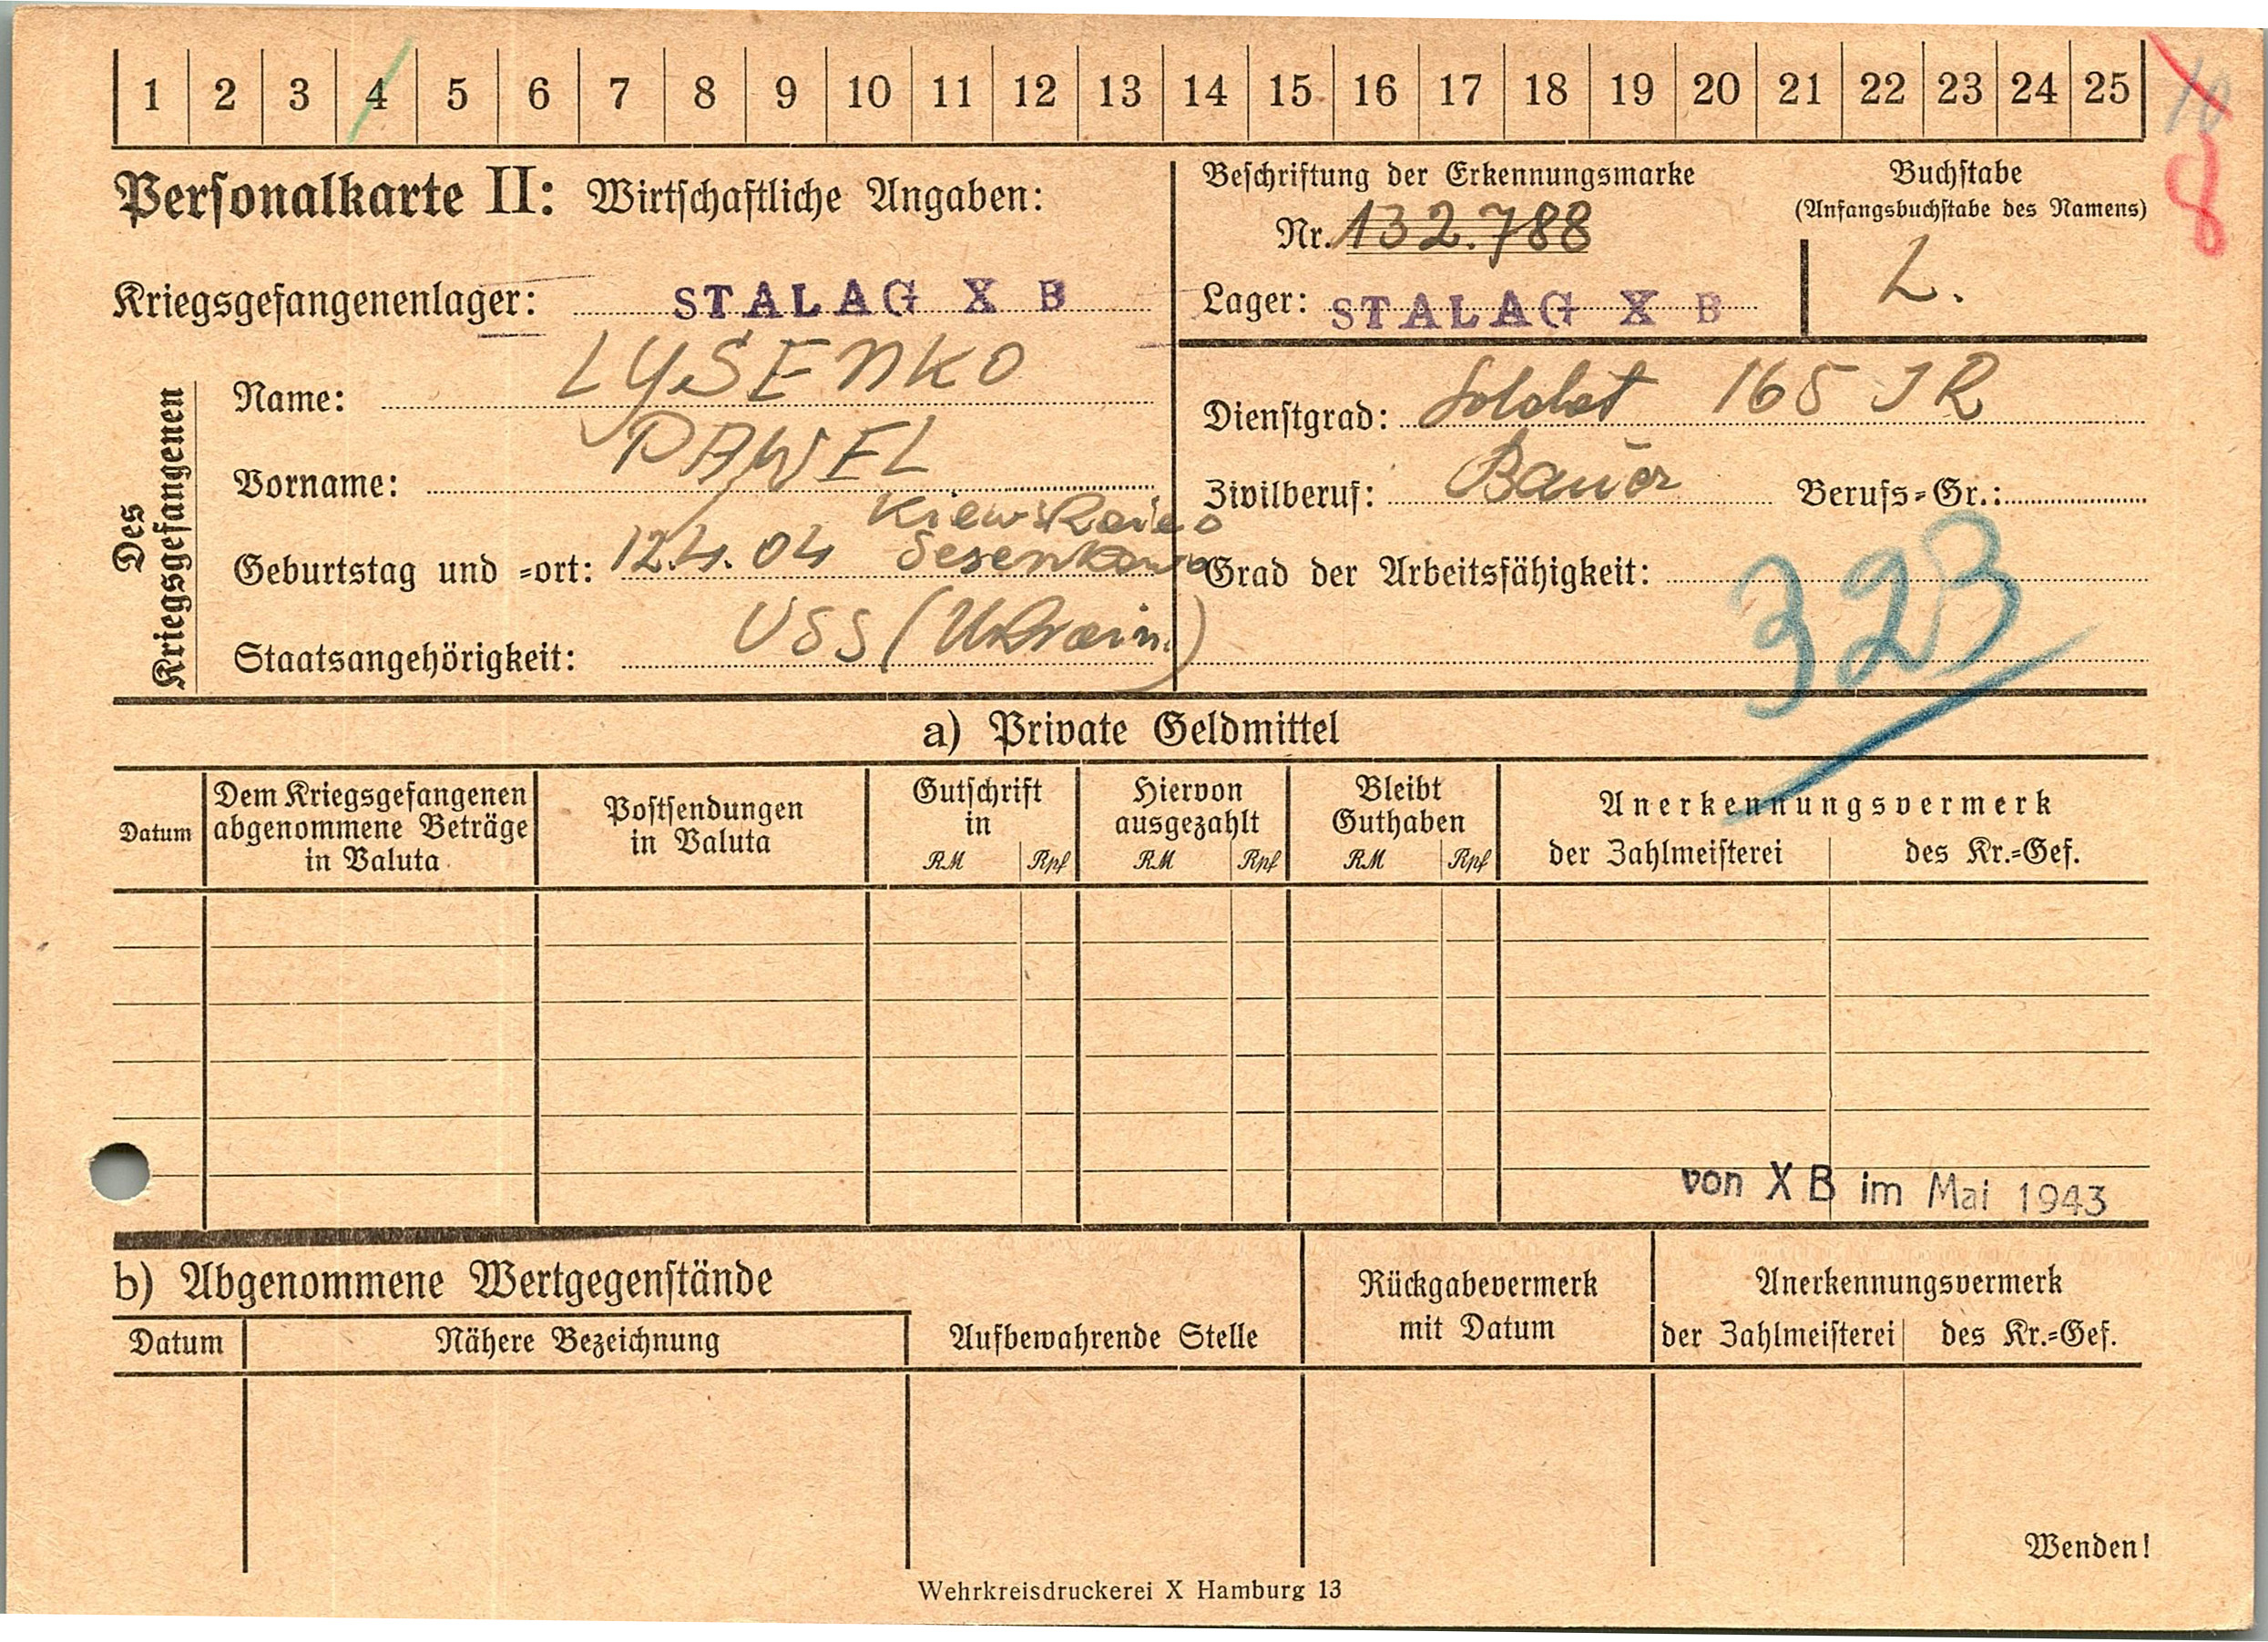 1 2 3 4 5 6 7 8 9 10 11 12 13 14 15 16 17 18 19 20 21 22 23 24 25
10
8
Personalkarte II: Wirtschaftliche Angaben:
Beschriftung der Erkennungsmarke
Nr. 132.788
Buchstabe
(Anfangsbuchstabe des Namens)
L.
Kriegsgefangenenlager: STALAG X B
Lager: STALAG X B
Des Kriegsgefangenen
Name: LYSENKO
Vorname: PAWEL
Geburtstag und =ort: 12.4.04
Staatsangehörigkeit: USS (Ukrain.)
Dienstgrad: Soldat 165 JR
Zivilberuf: Bauer Berufs=Gr.:
Grad der Arbeitsfähigkeit:
323
a) Private Geldmittel
Datum
Dem Kriegsgefangenen
abgenommene Beträge
in Valuta
Postsendungen
in Valuta
Gutschrift
in
RM Rpf
Hiervon
ausgezahlt
RM Rpf
Bleibt
Guthaben
RM Rpf
Anerkennungsvermerk
der Zahlmeisterei des Kr.=Gef.
von X B im Mai 1943
b) Abgenommene Wertgegenstände
Datum Nähere Bezeichnung
Aufbewahrende Stelle
Rückgabevermerk
mit Datum
Anerkennungsvermerk
der Zahlmeisterei des Kr.=Gef.
Wenden!
Wehrkreisdruckerei X Hamburg 13